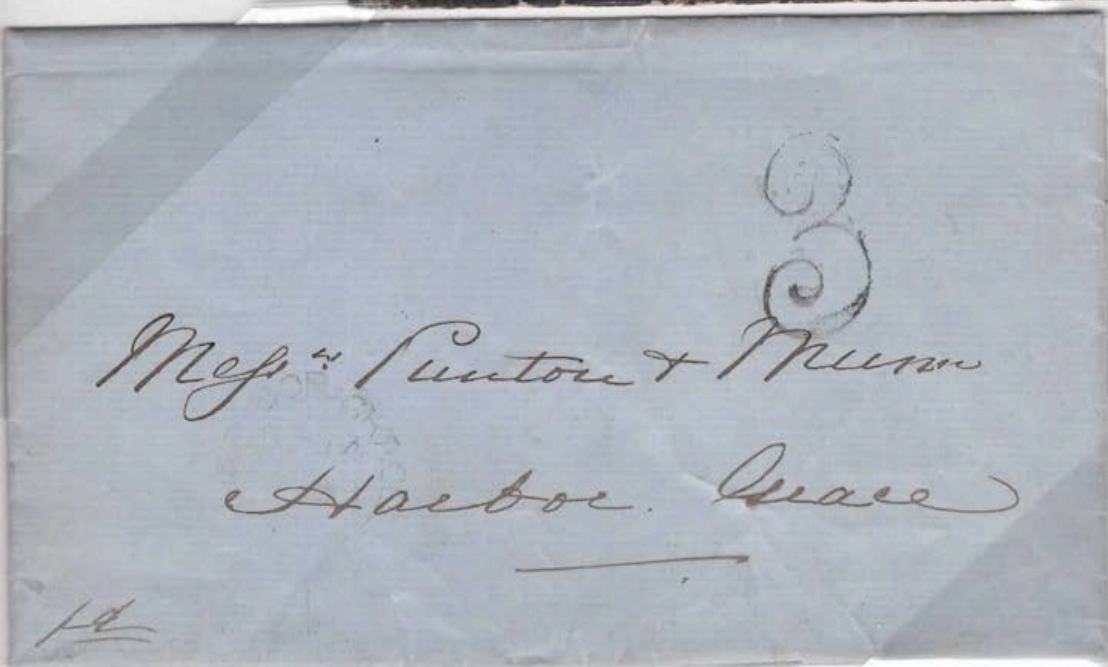 3
Messrs Punton & Munn
Harbor. Grace
1d